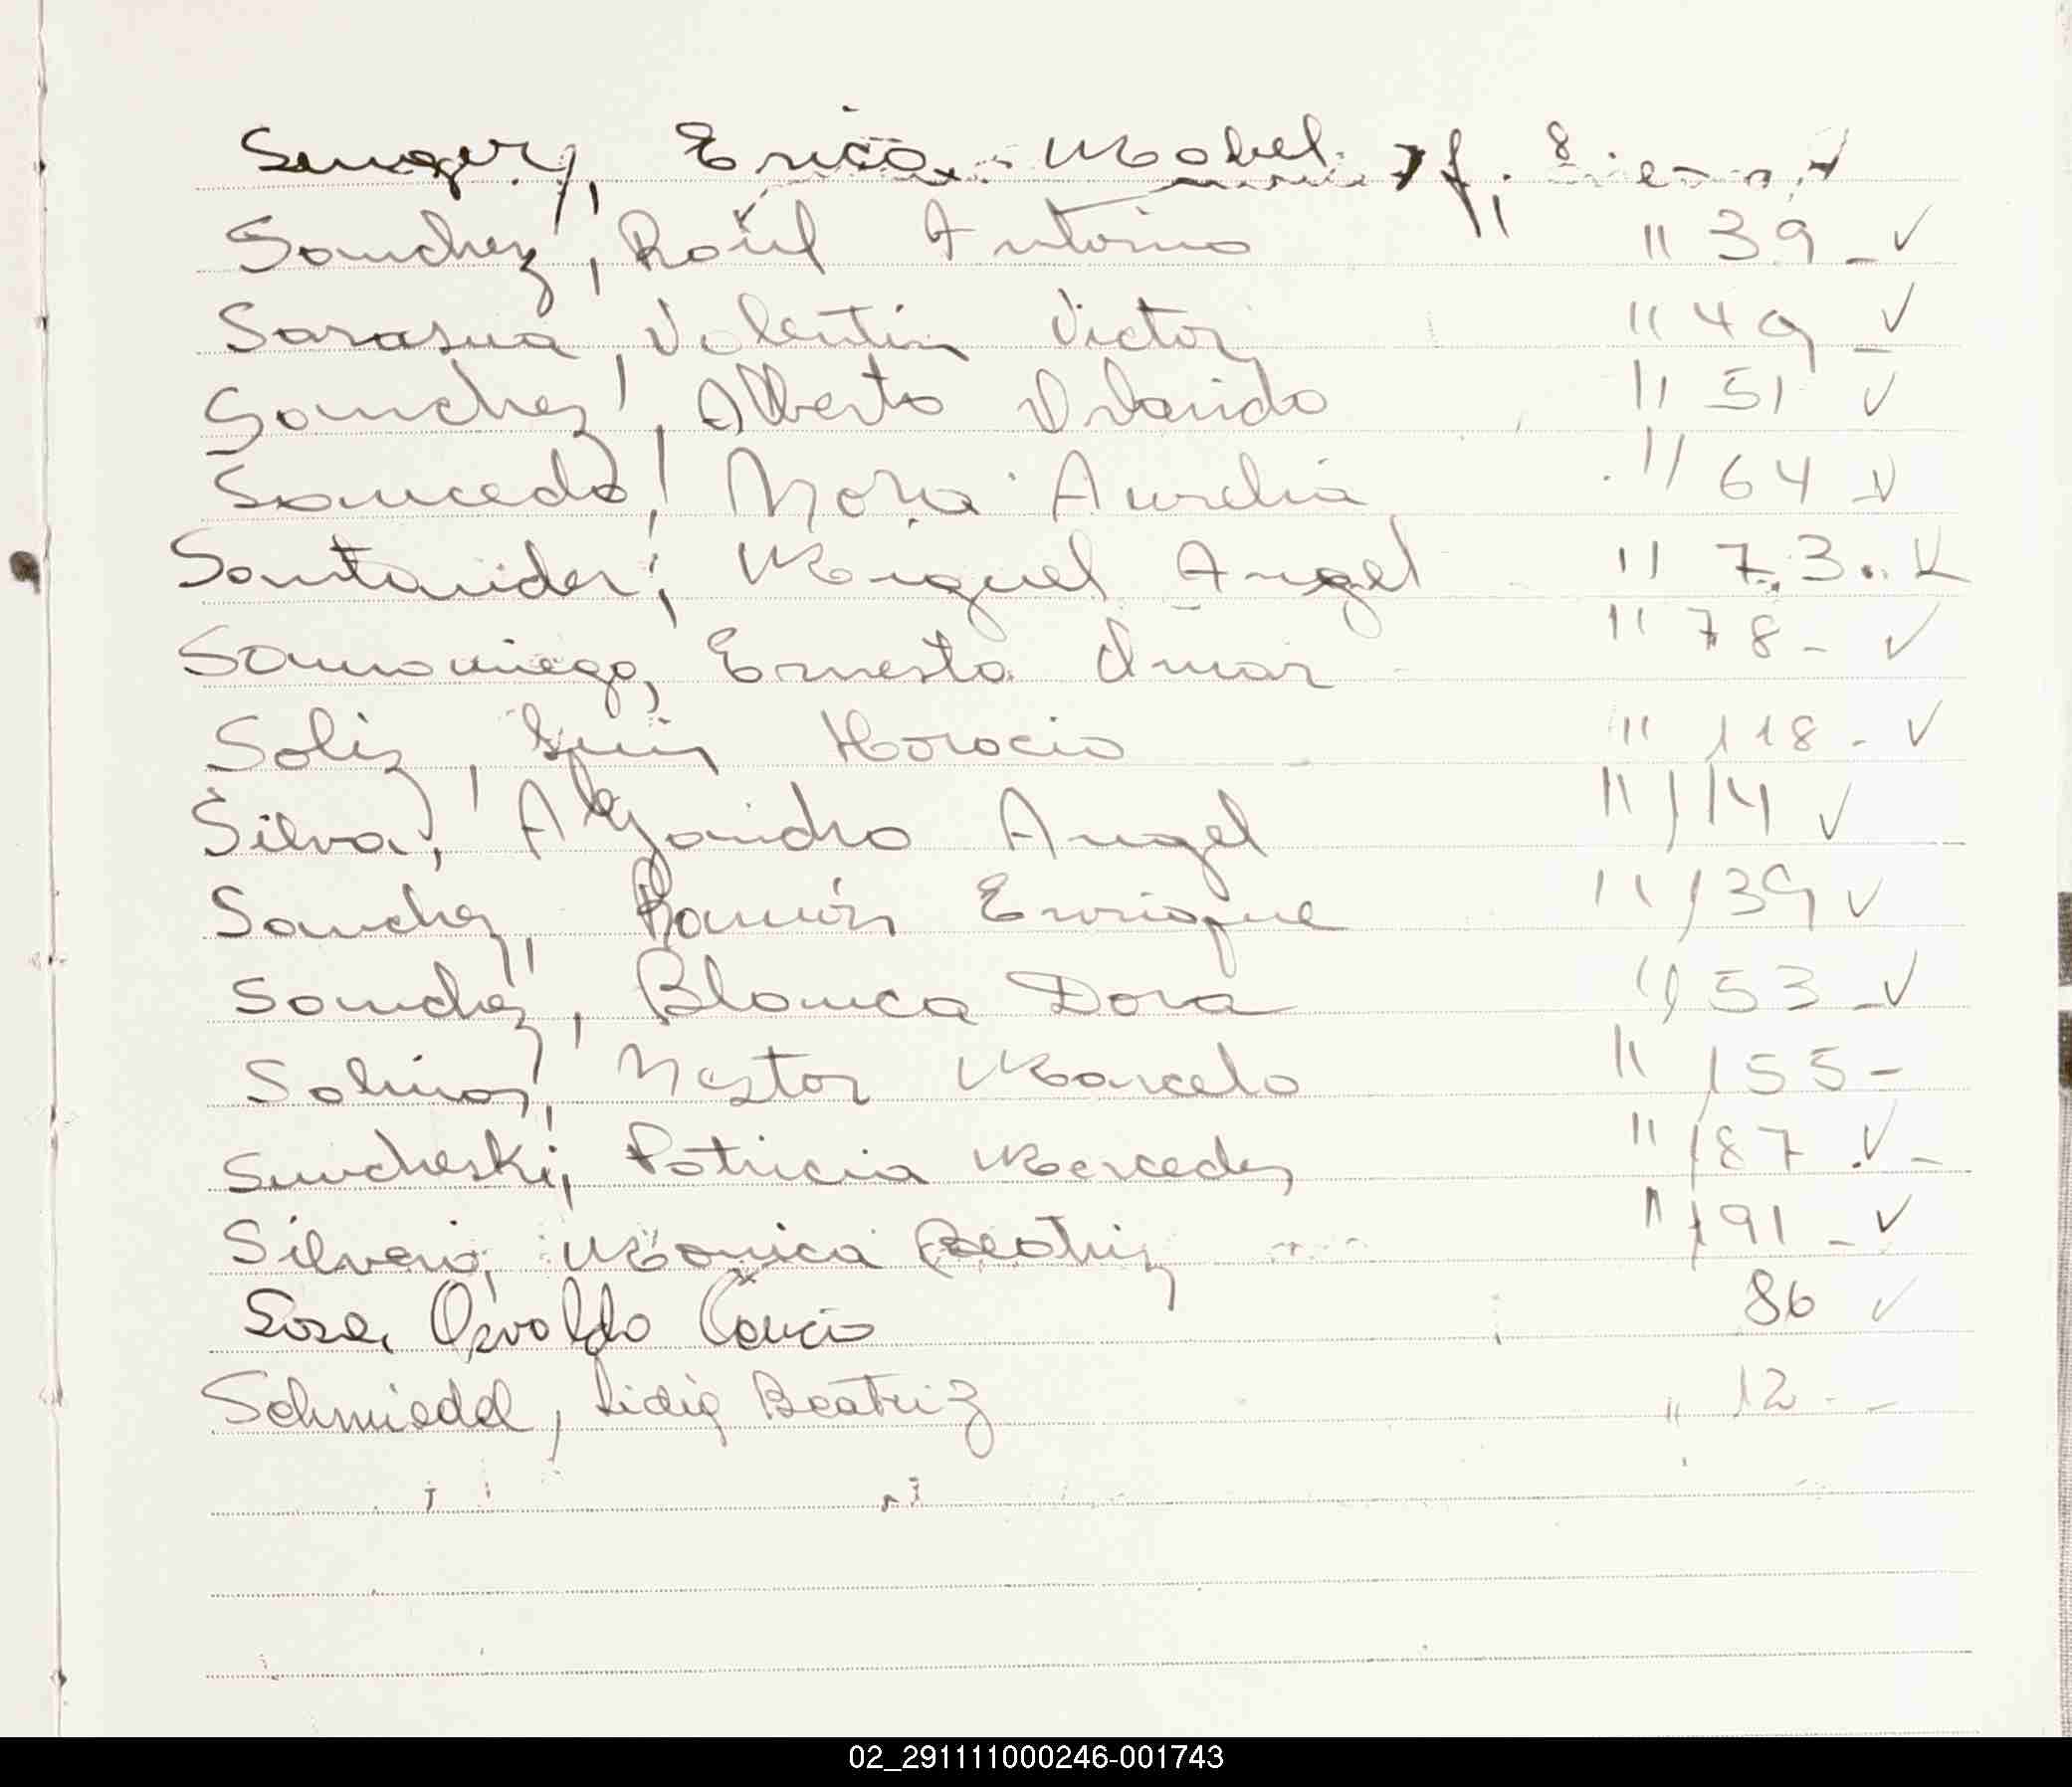 Senger, Erica Mabel f. 8 ✓
Sanchez, Raúl Antonio " 39 - ✓
Sarasua, Valentin Victor " 49 - ✓
Sanchez, Alberto Orlando " 51 ✓
Saucedo, Nora Aurelia " 64 - ✓
Santander, Miguel Angel " 73 - ✓
Samaniego, Ernesto Omar " 78 - ✓
Soliz, Luis Horacio " 118 - ✓
Silva, Alejandro Angel " 114 ✓
Sanchez, Ramón Enrique " 139 ✓
Sanchez, Blanca Dora " 153 - ✓
Salinas, Nestor Marcelo " 155 -
Sucheski, Patricia Mercedes " 187 ✓ -
Silverio, Monica Beatriz " 191 - ✓
Sosa, Osvaldo 86 ✓
Schmiedel, Lidia Beatriz " 12 - -
02_291111000246-001743